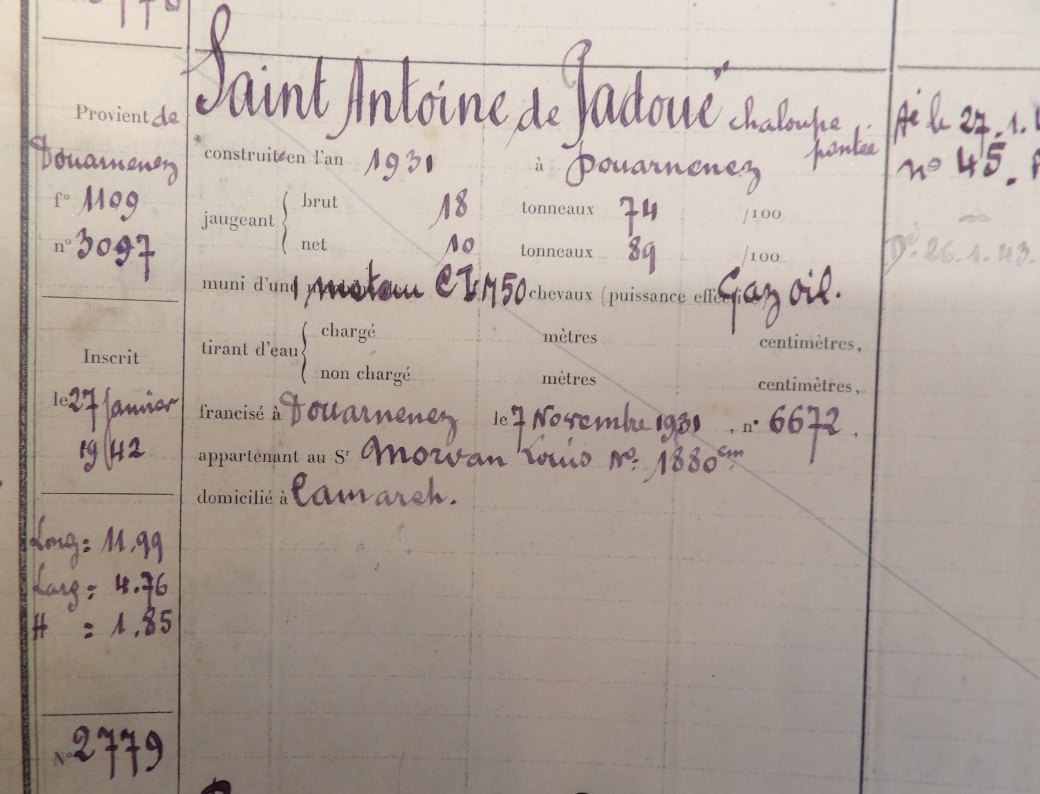 Provient de
Douarnenez
f° 1109
n° 3097
Inscrit
le 27 Janvier
1942
Long = 11.99
Larg = 4.76
H = 1.85
N° 2779
Saint Antoine de Padoue" chaloupe
pontée
construite en l'an 1931 à Douarnenez
jaugeant { brut 18 tonneaux 74 /100
net 10 tonneaux 89 /100
muni d'un 1 moteur CLM 50 chevaux (puissance effective Gaz oil.
tirant d'eau { chargé mètres centimètres,
non chargé mètres centimètres,
francisé à Douarnenez le 7 Novembre 1931, n° 6672,
appartenant au Sr Morvan Louis N° 1880 cm
domicilié à Camaret.
le 27.1.
n° 45.
26.1.43.